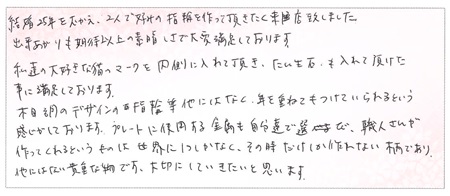 結婚25年をむかえ、2人で好みの指輪を作って頂きたく来店致しました。
出来あがりも期待以上の素晴しさで大変満足しております。
私達の大好きな猫のマークを内側に入れて頂き、たん生石も入れて頂けた
事に満足しております。
木目調のデザインの指輪等他にはなく、年を重ねてもつけていられるという
感じがしております。プレートに使用する金属も自分達で選んだ、職人さんが
作ってくれるというものは世界に1つしかなく、その時だけしか作れない柄であり、
他にはない貴重な物です、大切にしていきたいと思います。